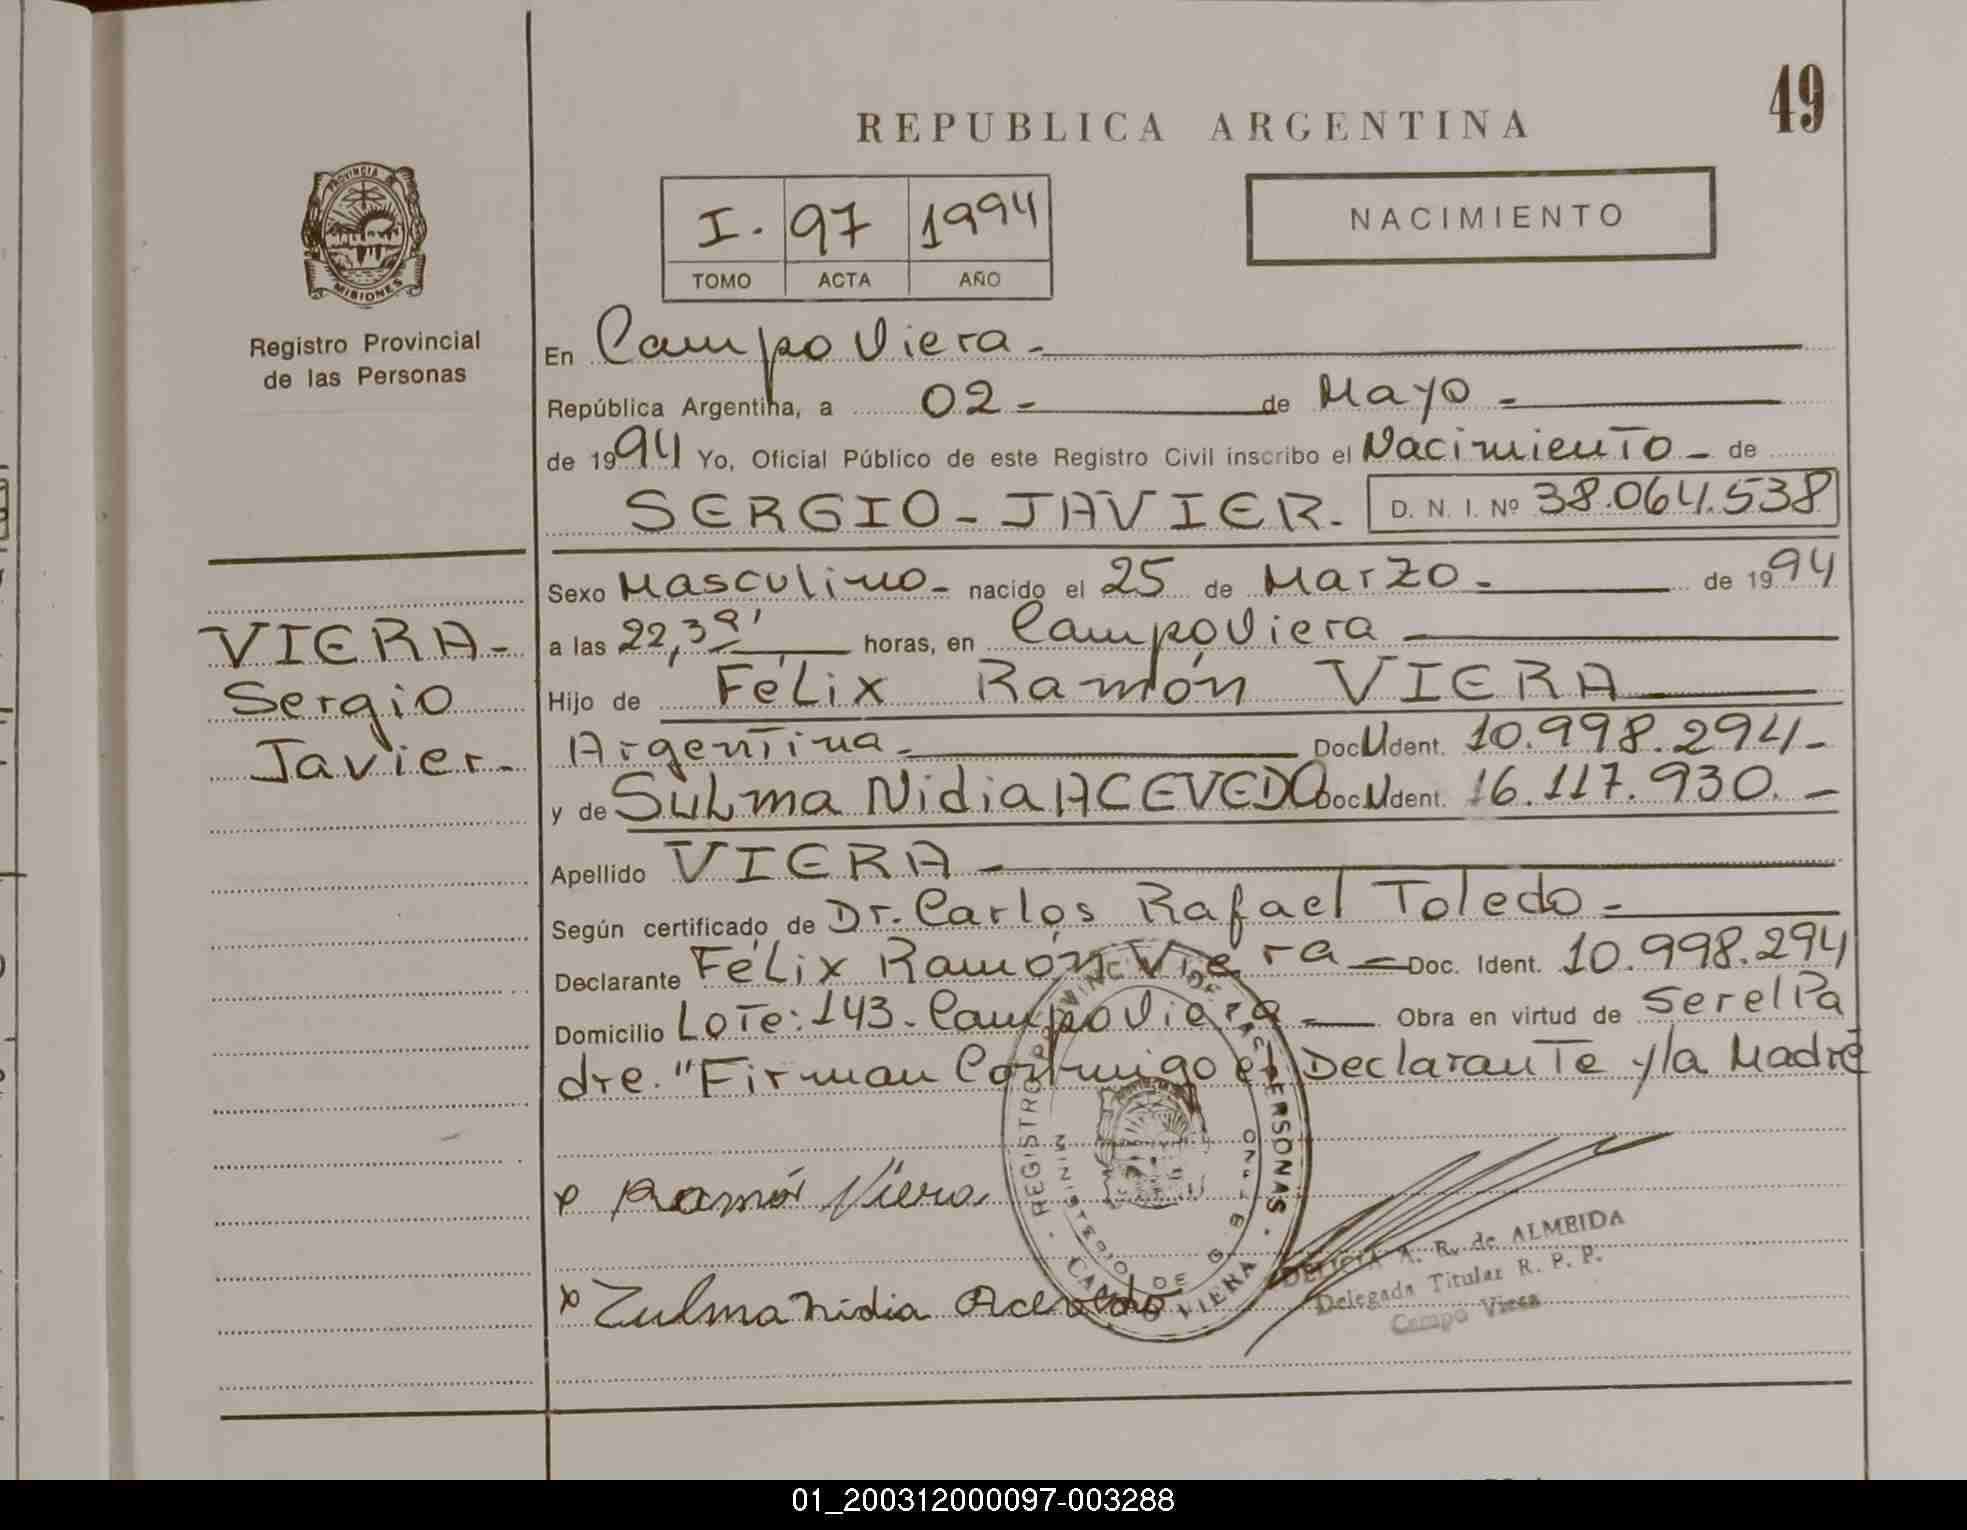 49
REPUBLICA ARGENTINA
PROVINCIA
MISIONES
I. 97 1994
TOMO ACTA AÑO
NACIMIENTO
Registro Provincial
de las Personas
En Campo Viera -
República Argentina, a 02 - de Mayo -
de 1994 Yo, Oficial Público de este Registro Civil inscribo el Nacimiento - de
SERGIO - JAVIER. D. N. I. Nº 38.064.538
Sexo Masculino - nacido el 25 de Marzo - de 1994
a las 22,39' horas, en Campo Viera
Hijo de Félix Ramón VIERA
Argentina - Doc. Ident. 10.998.294 -
y de Sulma Nidia ACEVEDO Doc. Ident. 16.117.930. -
Apellido VIERA -
Según certificado de Dr. Carlos Rafael Toledo -
Declarante Félix Ramón Viera - Doc. Ident. 10.998.294
Domicilio Lote: 143. Campo Viera - Obra en virtud de Ser el Pa
dre. "Firman Conmigo el Declarante y la Madre
VIERA -
Sergio
Javier -
x Ramón Viera
x Zulma Nidia Acevedo
REGISTRO PROVINCIAL DE LAS PERSONAS
MINISTERIO DE GOBIERNO
CAMPO VIERA
DELICIA A. R. de ALMEIDA
Delegada Titular R. P. P.
Campo Viera
01_200312000097-003288